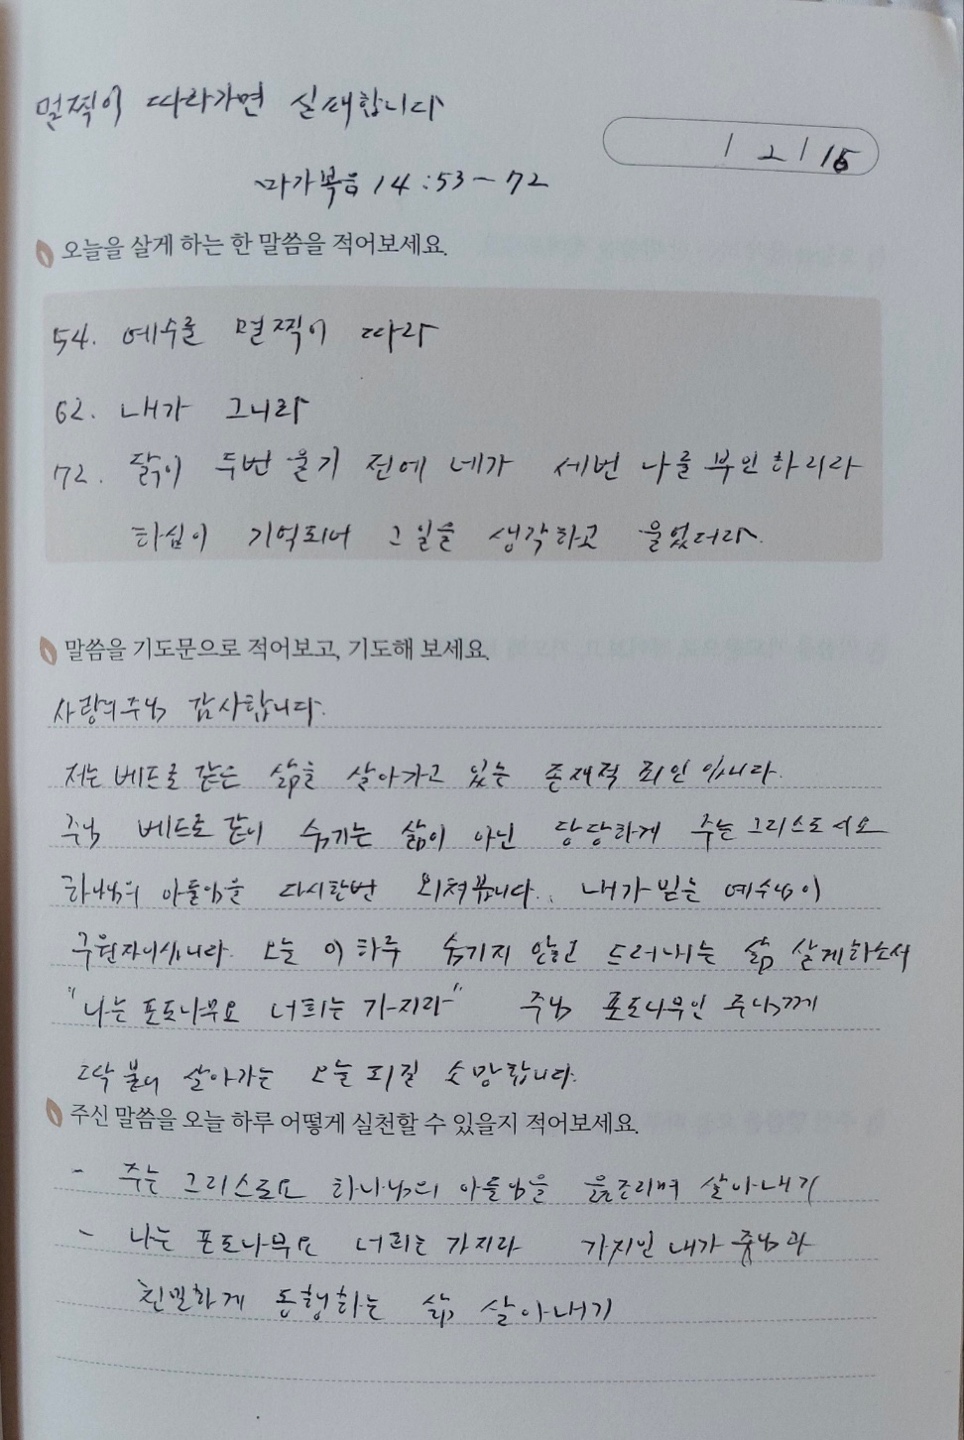 멀찍이 따라가면 실패합니다
/ 2 / 15
마가복음 14:53-72
오늘을 살게 하는 한 말씀을 적어보세요.
54. 예수를 멀찍이 따라
62. 내가 그니라
72. 닭이 두번 울기 전에 네가 세번 나를 부인하리라
하심이 기억되어 그 일을 생각하고 울었더라.
말씀을 기도문으로 적어보고, 기도해 보세요.
사랑의주님 감사합니다.
저는 베드로 같은 삶을 살아가고 있는 존재적 죄인입니다.
주님 베드로 같이 숨기는 삶이 아닌 당당하게 주는 그리스도시요
하나님의 아들임을 다시한번 외쳐봅니다.. 내가 믿는 예수님이
구원자이십니다. 오늘 이 하루 숨기지 않고 드러내는 삶 살게하소서
"나는 포도나무요 너희는 가지라" 주님 포도나무인 주님께
딱 붙어 살아가는 오늘 되길 소망합니다.
주신 말씀을 오늘 하루 어떻게 실천할 수 있을지 적어보세요.
- 주는 그리스도요 하나님의 아들임을 읊조리며 살아내기
- 나는 포도나무요 너희는 가지라 가지인 내가 주님과
친밀하게 동행하는 삶 살아내기